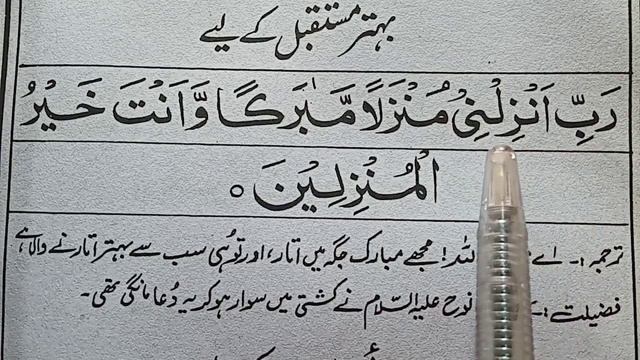 بہتر مستقبل کے لیے
رَبِّ اَنْزِلْنِیْ مُنْزَلًا مُّبٰرَكًا وَّاَنْتَ خَیْرُ
الْمُنْزِلِیْنَ ○
ترجمہ :۔ اے اللہ! مجھے مبارک جگہ میں اتار، اور تُو ہی سب سے بہتر اتارنے والا ہے
فضیلت :۔ نوح علیہ السّلام نے کشتی میں سوار ہو کر یہ دُعا مانگی تھی۔